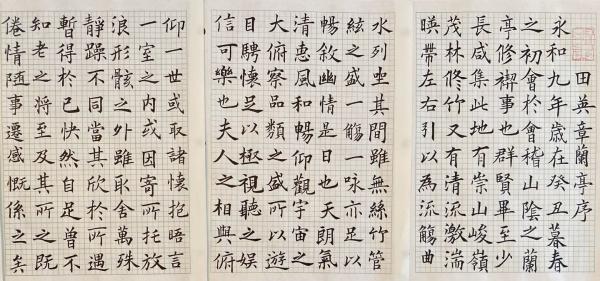 田英章蘭亭序
永和九年歲在癸丑暮春
之初會於會稽山陰之蘭
亭修禊事也群賢畢至少
長咸集此地有崇山峻嶺
茂林修竹又有清流激湍
暎帶左右引以為流觴曲
水列坐其間雖無絲竹管
絃之盛一觴一咏亦足以
暢敘幽情是日也天朗氣
清惠風和暢仰觀宇宙之
大俯察品類之盛所以遊
目騁懷足以極視聽之娛
信可樂也夫人之相與俯
仰一世或取諸懷抱晤言
一室之内或因寄所托放
浪形骸之外雖取舍萬殊
靜躁不同當其欣於所遇
暫得於己快然自足曾不
知老之將至及其所之既
倦情隨事遷感慨係之矣